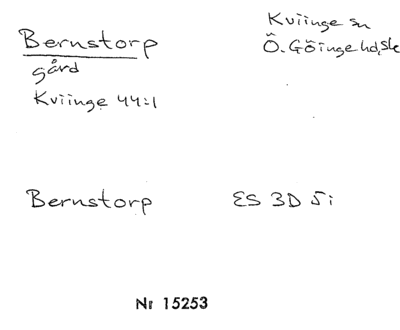 Bernstorp
gård
Kviinge 44:1
Kviinge sn
Ö. Göinge hd, sk
Bernstorp ES 3D 5i
Nr 15253